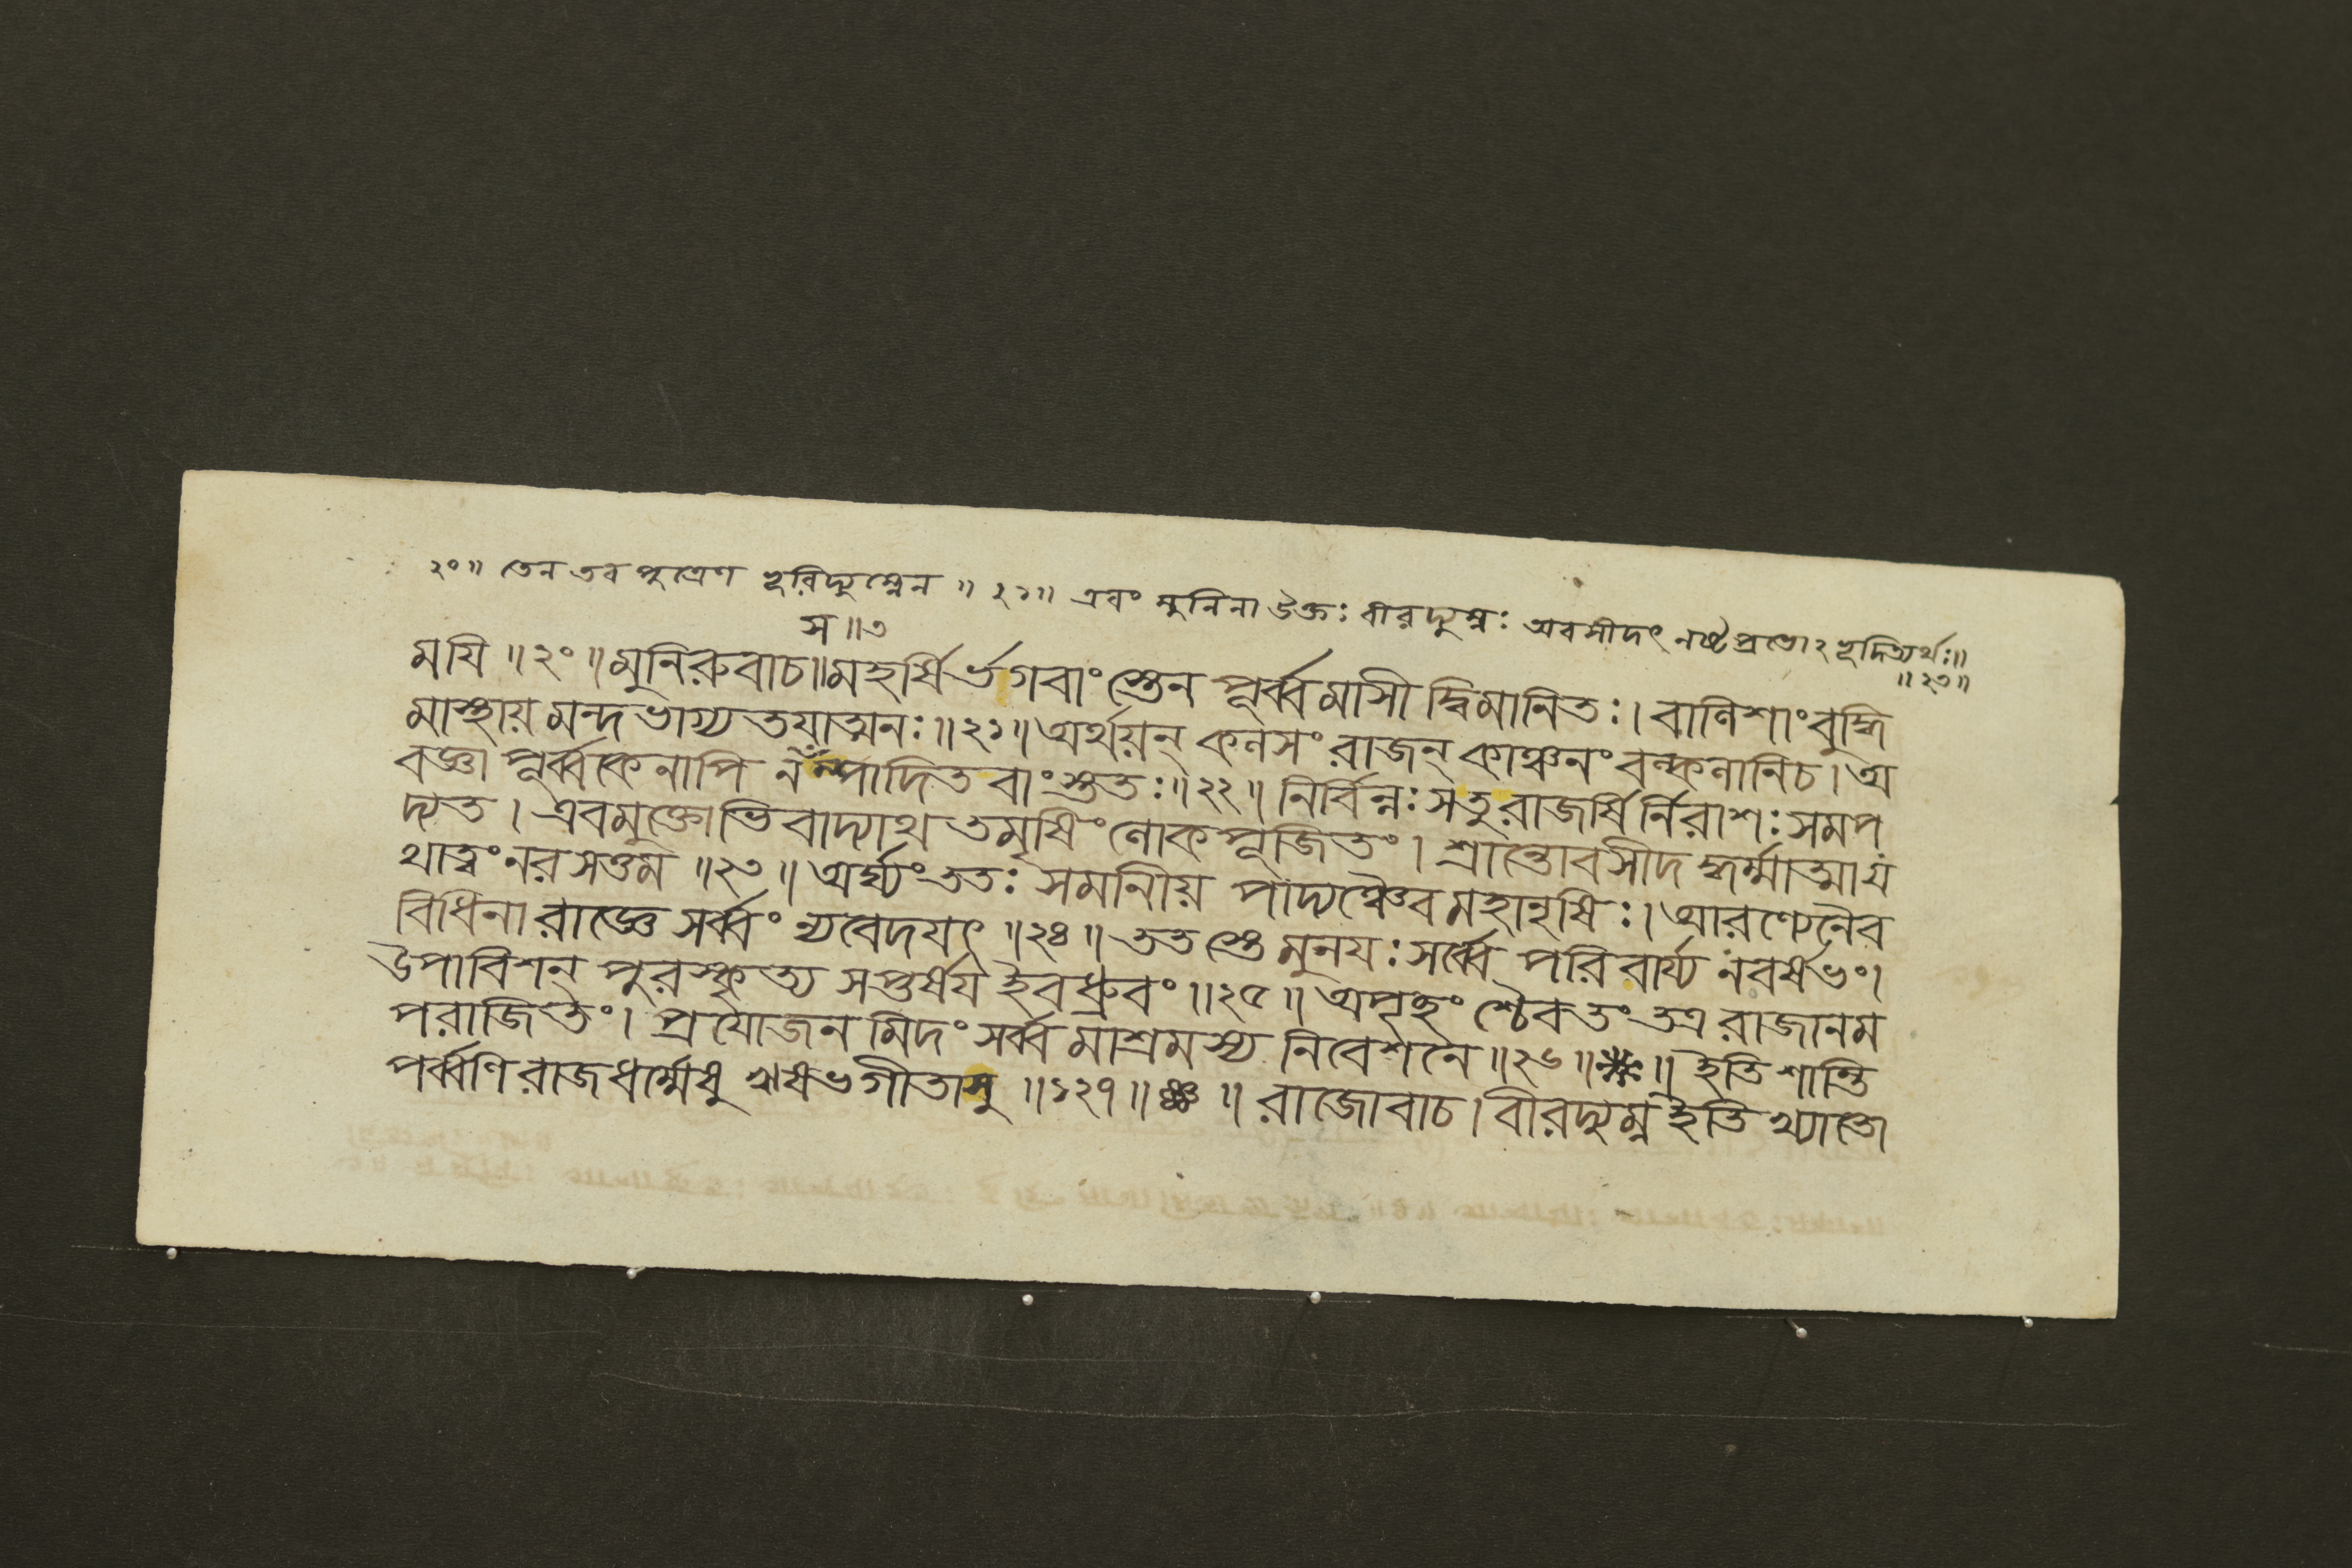 ২০॥ তেন তব পুত্রেণ হরিদ্যুম্নেন ॥ ২১॥ এবং মুনিনা উক্তঃ বীরদ্যুম্নঃ অবসীদৎ নষ্টপ্রভোঽহূদিত্যর্থঃ॥
॥২৩॥
স॥৩
ময়ি ॥২০॥ মুনিরুবাচ॥ মহর্ষির্ভগবাংস্তেন পূর্ব্বমাসীদ্বিমানিতঃ। বালিশাং বুদ্ধি
মাস্থায় মন্দভাগ্যতয়াত্মনঃ॥২১॥ অর্থয়ন্ কলসং রাজন্ কাঞ্চনং বল্কলানি চ। অ
বজ্ঞাপূর্ব্বকেনাপি ন সম্পাদিতবাংস্ততঃ॥২২॥ নির্বিন্নঃ সতু রাজর্ষির্নিরাশঃ সমপ
দ্যত। এবমুক্তোভিবাদ্যাথ তমৃষিং লোকপূজিতং। শ্রান্তোবসীদদ্ধর্ম্মাত্মা য
থাত্বং নরসত্তম ॥২৩॥ অর্ঘ্যং ততঃ সমানীয় পাদ্যঞ্চৈব মহানৃষিঃ। আরণ্যেনৈব
বিধিনা রাজ্ঞে সর্ব্বং ন্যবেদয়ৎ ॥২৪॥ ততস্তে মুনয়ঃ সর্ব্বে পরিবার্য্য নরর্ষভং।
উপাবিশন্ পুরস্কৃত্য সপ্তর্ষয় ইব ধ্রুবং॥২৫॥ অপৃচ্ছংশ্চৈব তং তত্র রাজানম
পরাজিতং। প্রয়োজনমিদং সর্ব্বমাশ্রমস্য নিবেশনে॥২৬॥ ॥ ইতি শান্তি
পর্ব্বণি রাজধর্ম্মেষু ঋষভগীতাসু ॥১২৭॥ ॥ রাজোবাচ। বীরদ্যুম্ন ইতি খ্যাতো